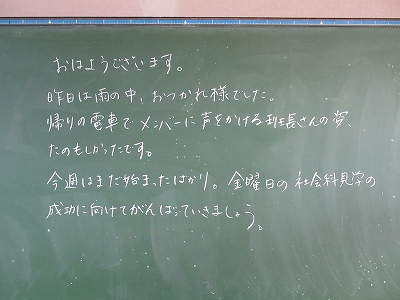 おはようございます。
昨日は雨の中、おつかれ様でした。
帰りの電車でメンバーに声をかける班長さんの姿、
たのもしかったです。
今週はまだ始まったばかり。金曜日の社会科見学の
成功に向けてがんばっていきましょう。